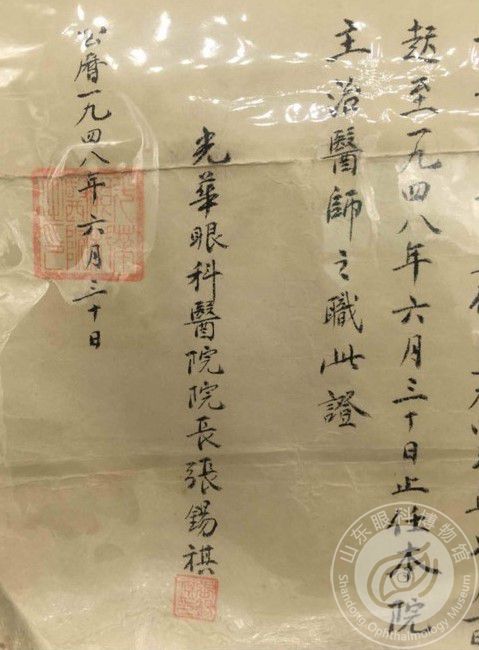 起至一九四八年六月三十日止任本院
主治醫師之職此證
光華眼科醫院院長張錫祺
公曆一九四八年六月三十日
山东眼科博物馆
Shandong Ophthalmology Museum